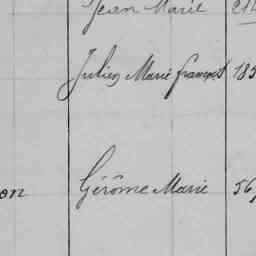 Jean Marie 21
Julien Marie françois 185
on Gérôme Marie 56